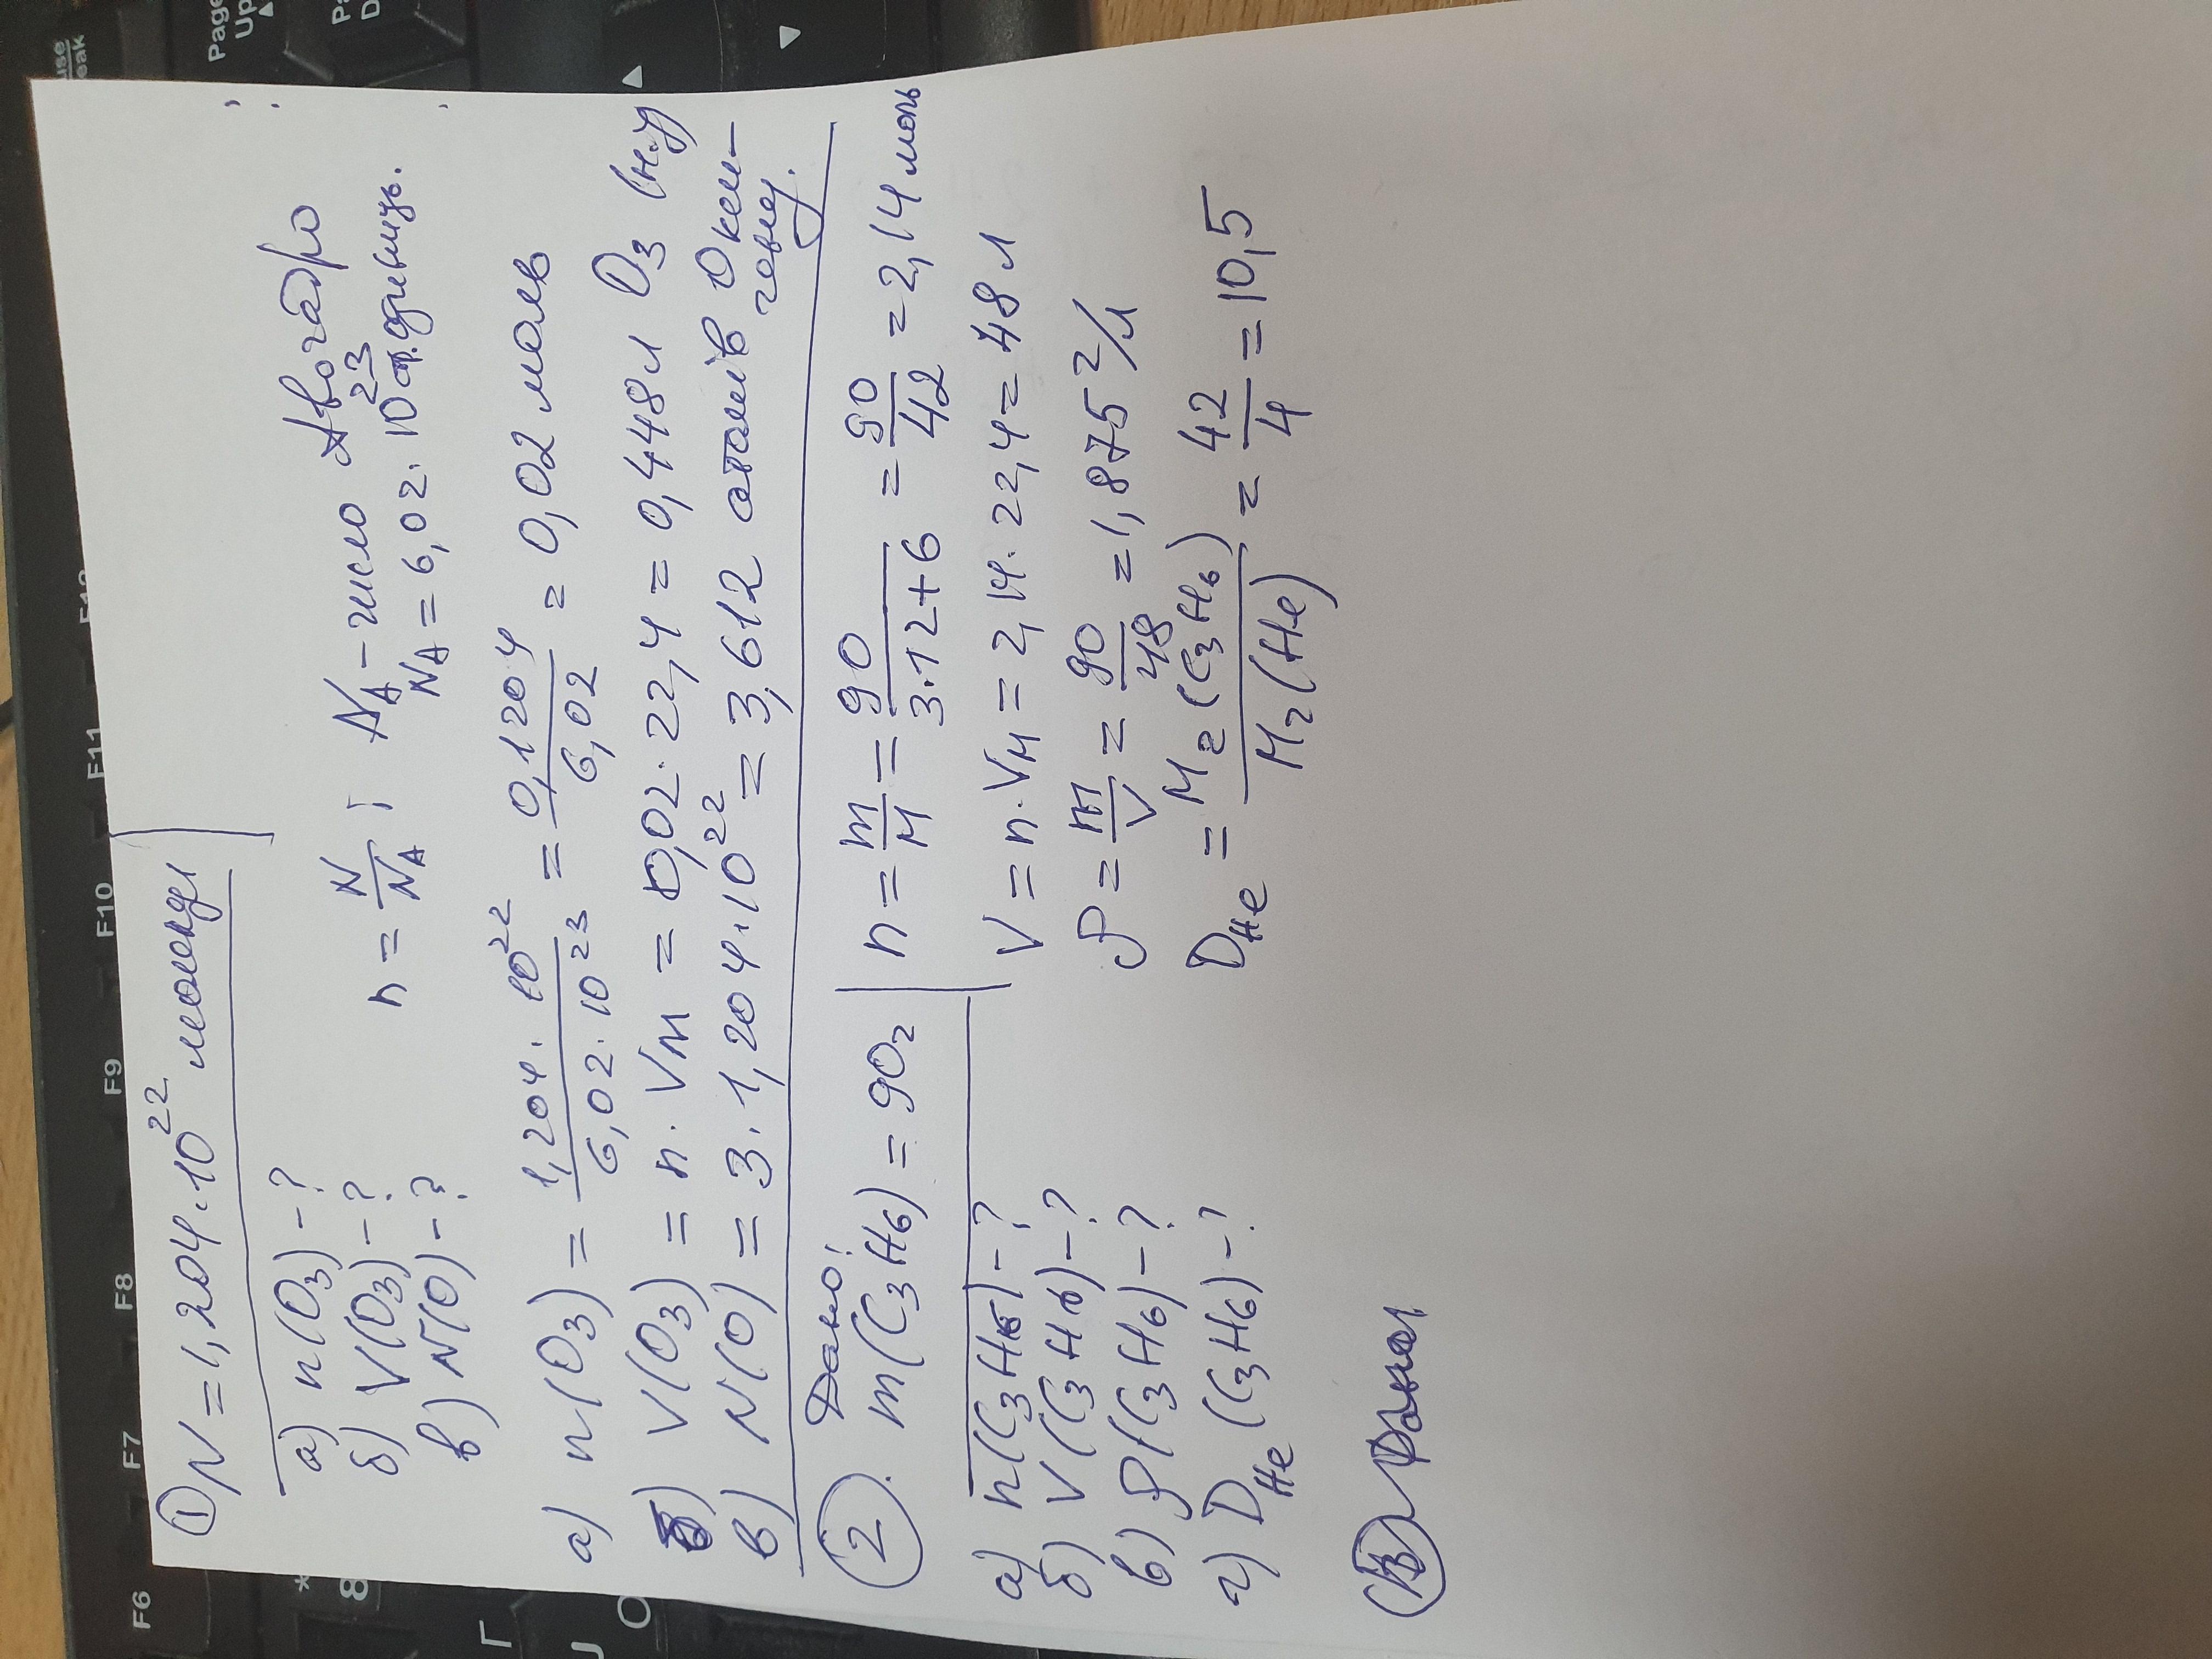 ① N = 1,204·10²² молекул
а) n(O₃) - ?
б) V(O₃) - ?
в) N(O) - ?
n = N/N_A ; N_A - число Авогадро
N_A = 6,02·10²³
а) n(O₃) = 1,204·10²²/6,02·10²³ = 0,1204/6,02 = 0,02 моль
б) V(O₃) = n·V_M = 0,02·22,4 = 0,448 л O₃ (н.у)
в) N(O) = 3·1,204·10²² = 3,612 атомів Оксигену.
② Дано:
m(C₃H₆) = 90г
а) n(C₃H₆) - ?
б) V(C₃H₆) - ?
в) ρ(C₃H₆) - ?
г) D_He(C₃H₆) - ?
n = m/M = 90/3·12+6 = 90/42 = 2,14 моль
V = n·V_M = 2,14·22,4 = 48 л
ρ = m/V = 90/48 = 1,875 г/л
D_He = M₂(C₃H₆)/M₂(He) = 42/4 = 10,5
③
F6
F7
F8
F9
F10
F11
F12
Page Up
8
*
Г
U
O